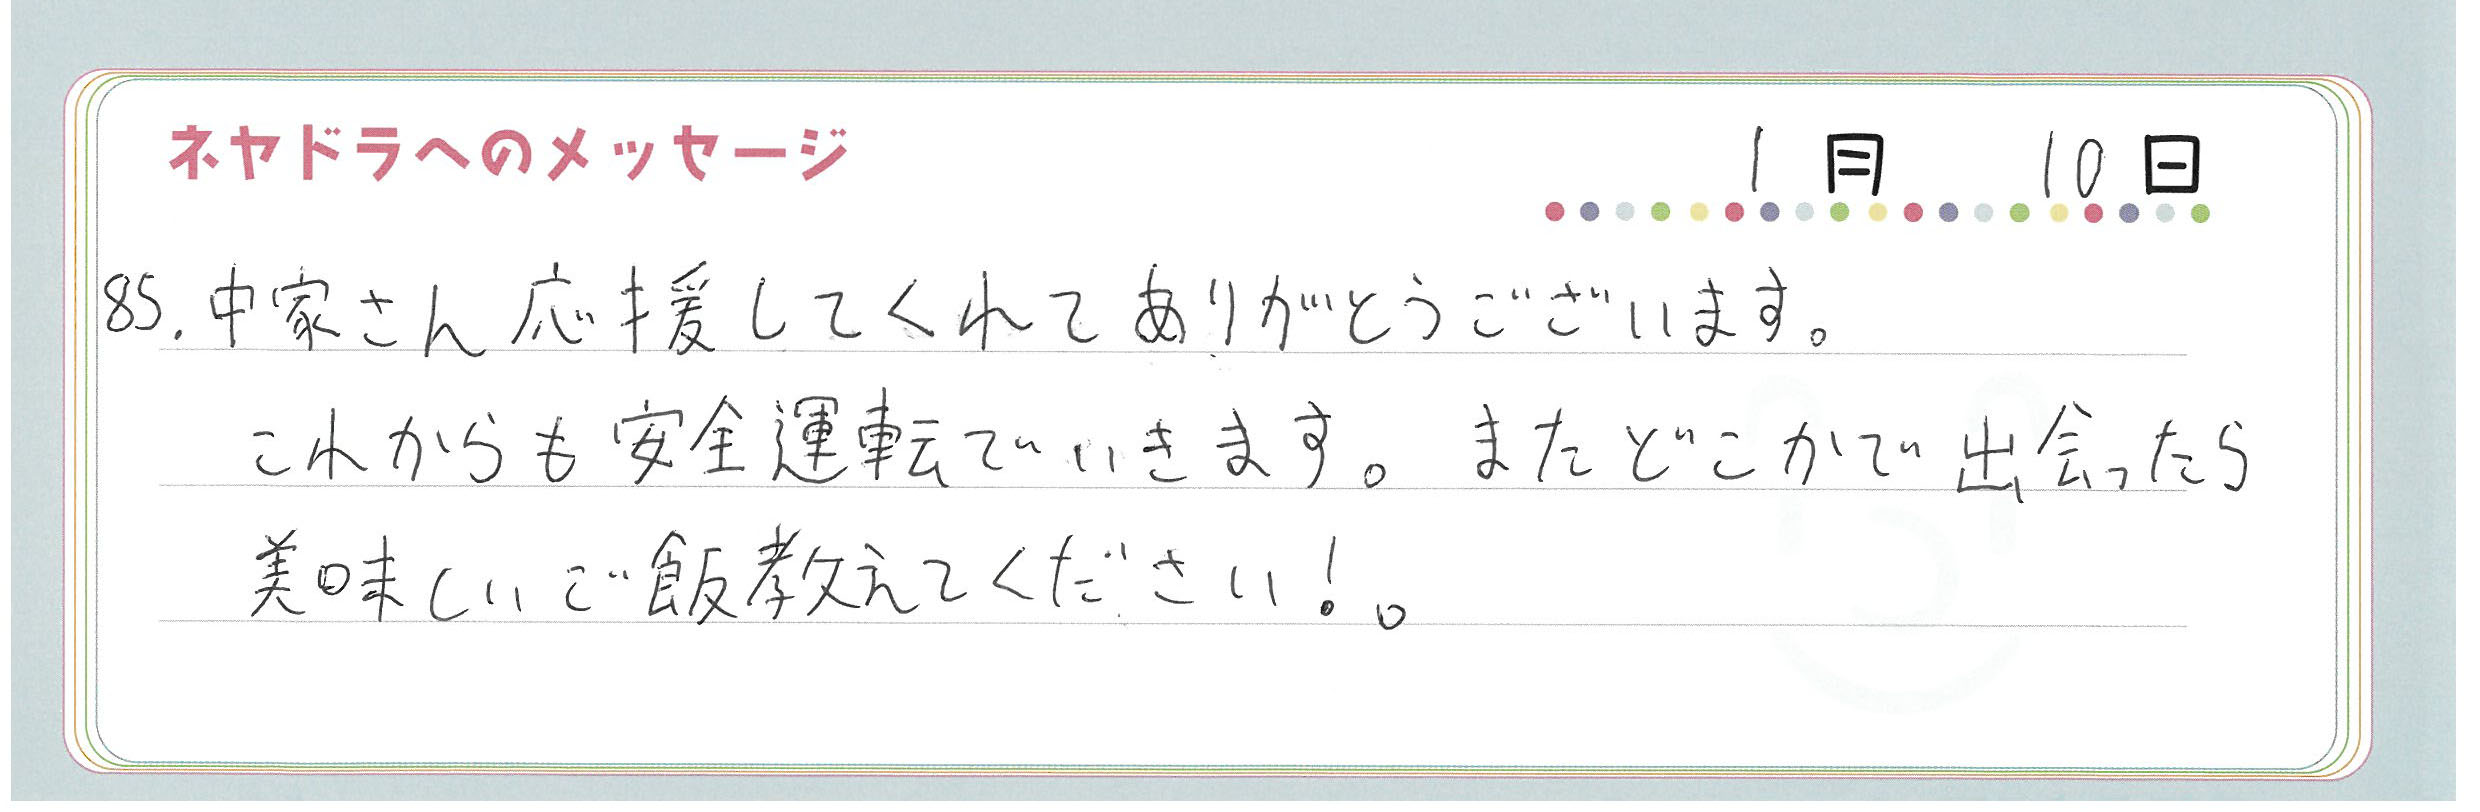 ネヤドラへのメッセージ
1月 10日
85.中家さん応援してくれてありがとうございます。
これからも安全運転でいきます。またどこかで出会ったら
美味しいご飯教えてください!。